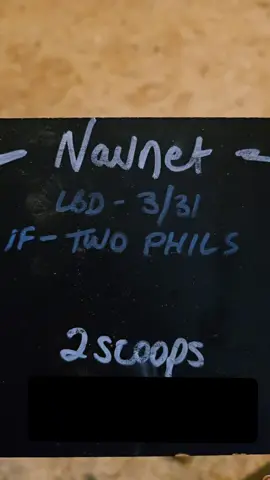 - Navnet -
LBD - 3/31
iF - TWO PHILS
2 scoops